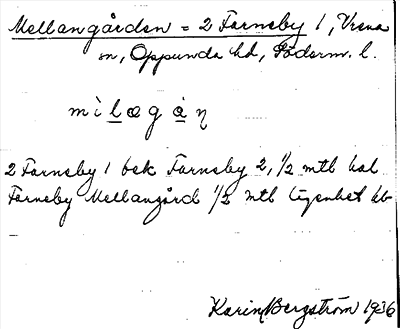 Mellangården = 2 Farneby 1, Vrena
sn, Oppunda hd, Söderm. l.
mìlægàn
2 Farneby 1 bek Farneby 2, 1/2 mtl kal
Farneby Mellangård 1/2 mtl lägenhet bb
Karin Bergström 1936